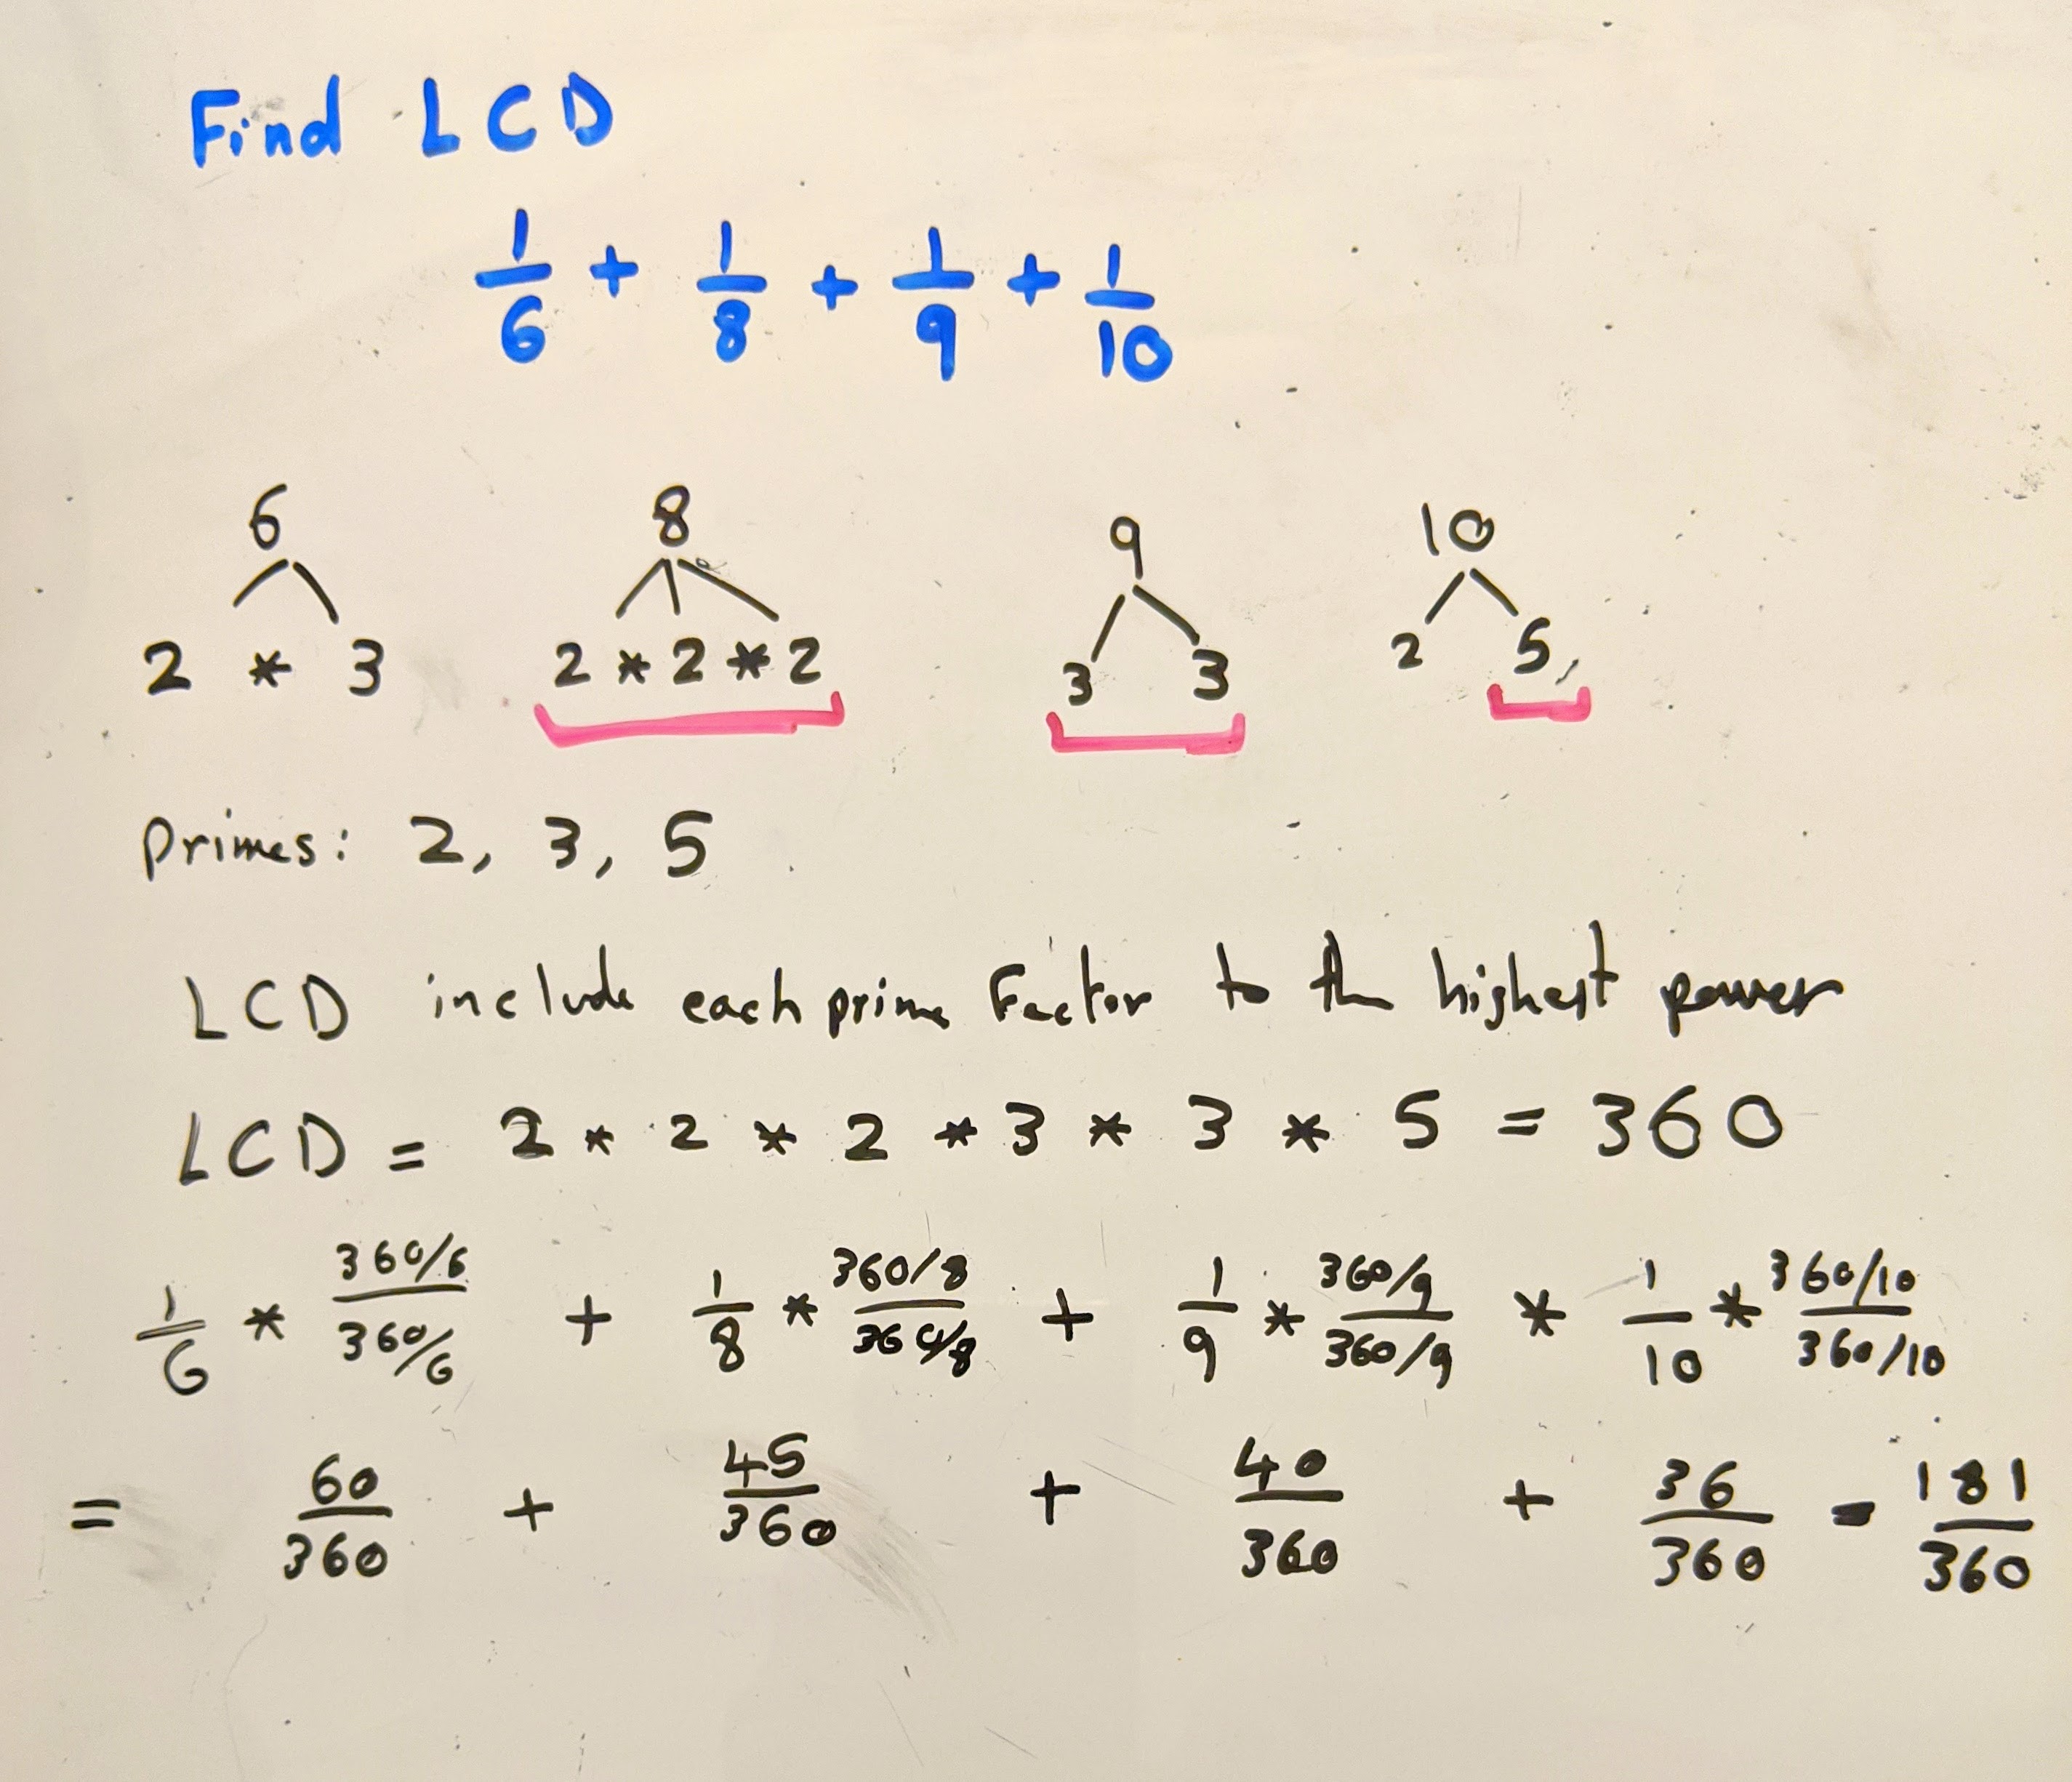 Find LCD
1/6 + 1/8 + 1/9 + 1/10
6 8 9 10
2 * 3 2 * 2 * 2 3 3 2 5,
Primes: 2, 3, 5
LCD include each prime Factor to the highest power
LCD = 2 * 2 * 2 * 3 * 3 * 5 = 360
1/6 * (360/6)/(360/6) + 1/8 * (360/8)/(360/8) + 1/9 * (360/9)/(360/9) * 1/10 * (360/10)/(360/10)
= 60/360 + 45/360 + 40/360 + 36/360 = 181/360